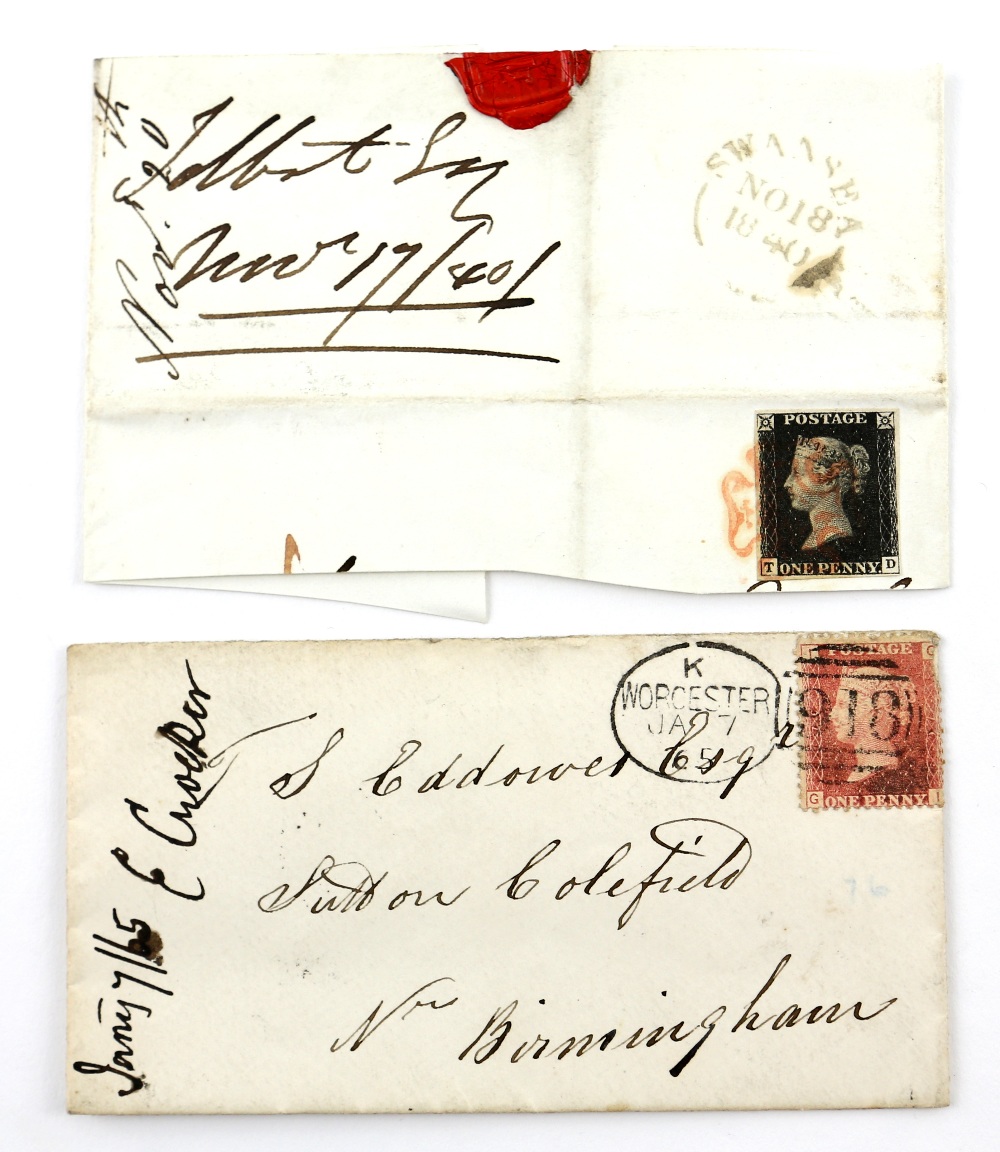 Nov. 20th
Talbot Esq
Novr 17/40/
SWANSEA
NO18
1840
POSTAGE
T ONE PENNY. D
K
WORCESTER
JA 7
65
POSTAGE
918
G ONE PENNY I
S Eddowes Esqr
Sutton Colefield
Nr Birmingham
76
Jany 7/65 E Crocker